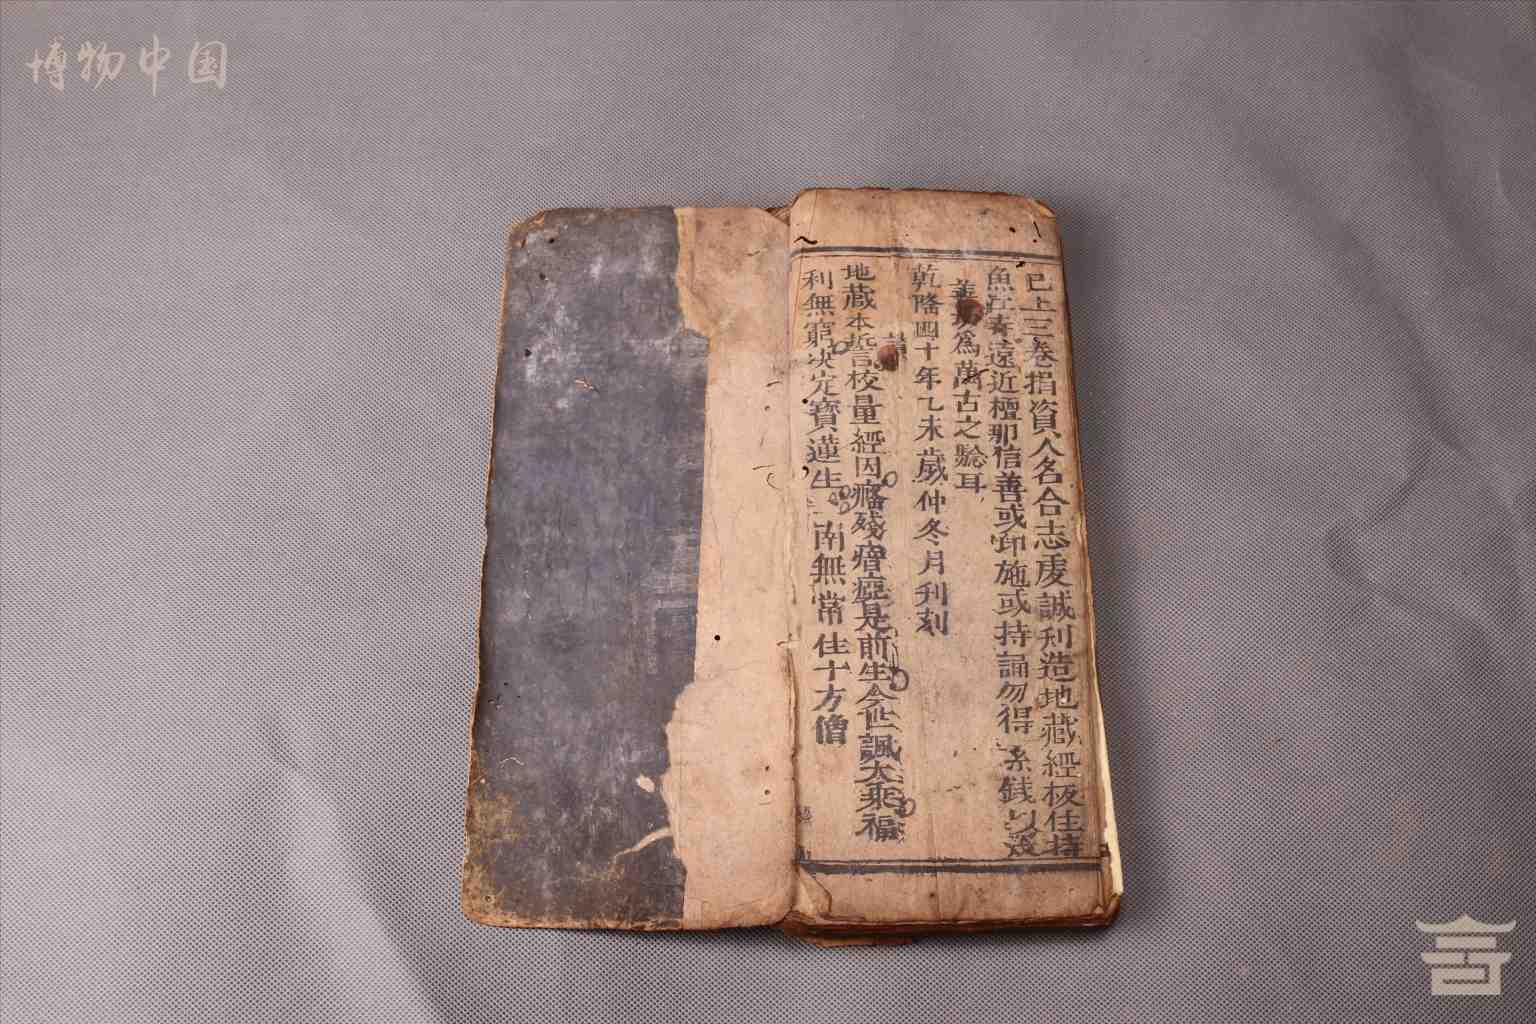 博物中国
已上三卷捐資人名合志虔誠刋造地藏經板住持
魚 遠近檀那信善或印施或持誦勿得 錢以
善 為萬古之驗耳
乾隆四十年乙未歲仲冬月刋刻
讃
地藏本誓校量經因 殘瘖瘂是前生今世諷大乘福
利無窮决定寶蓮生 南無常住十方僧